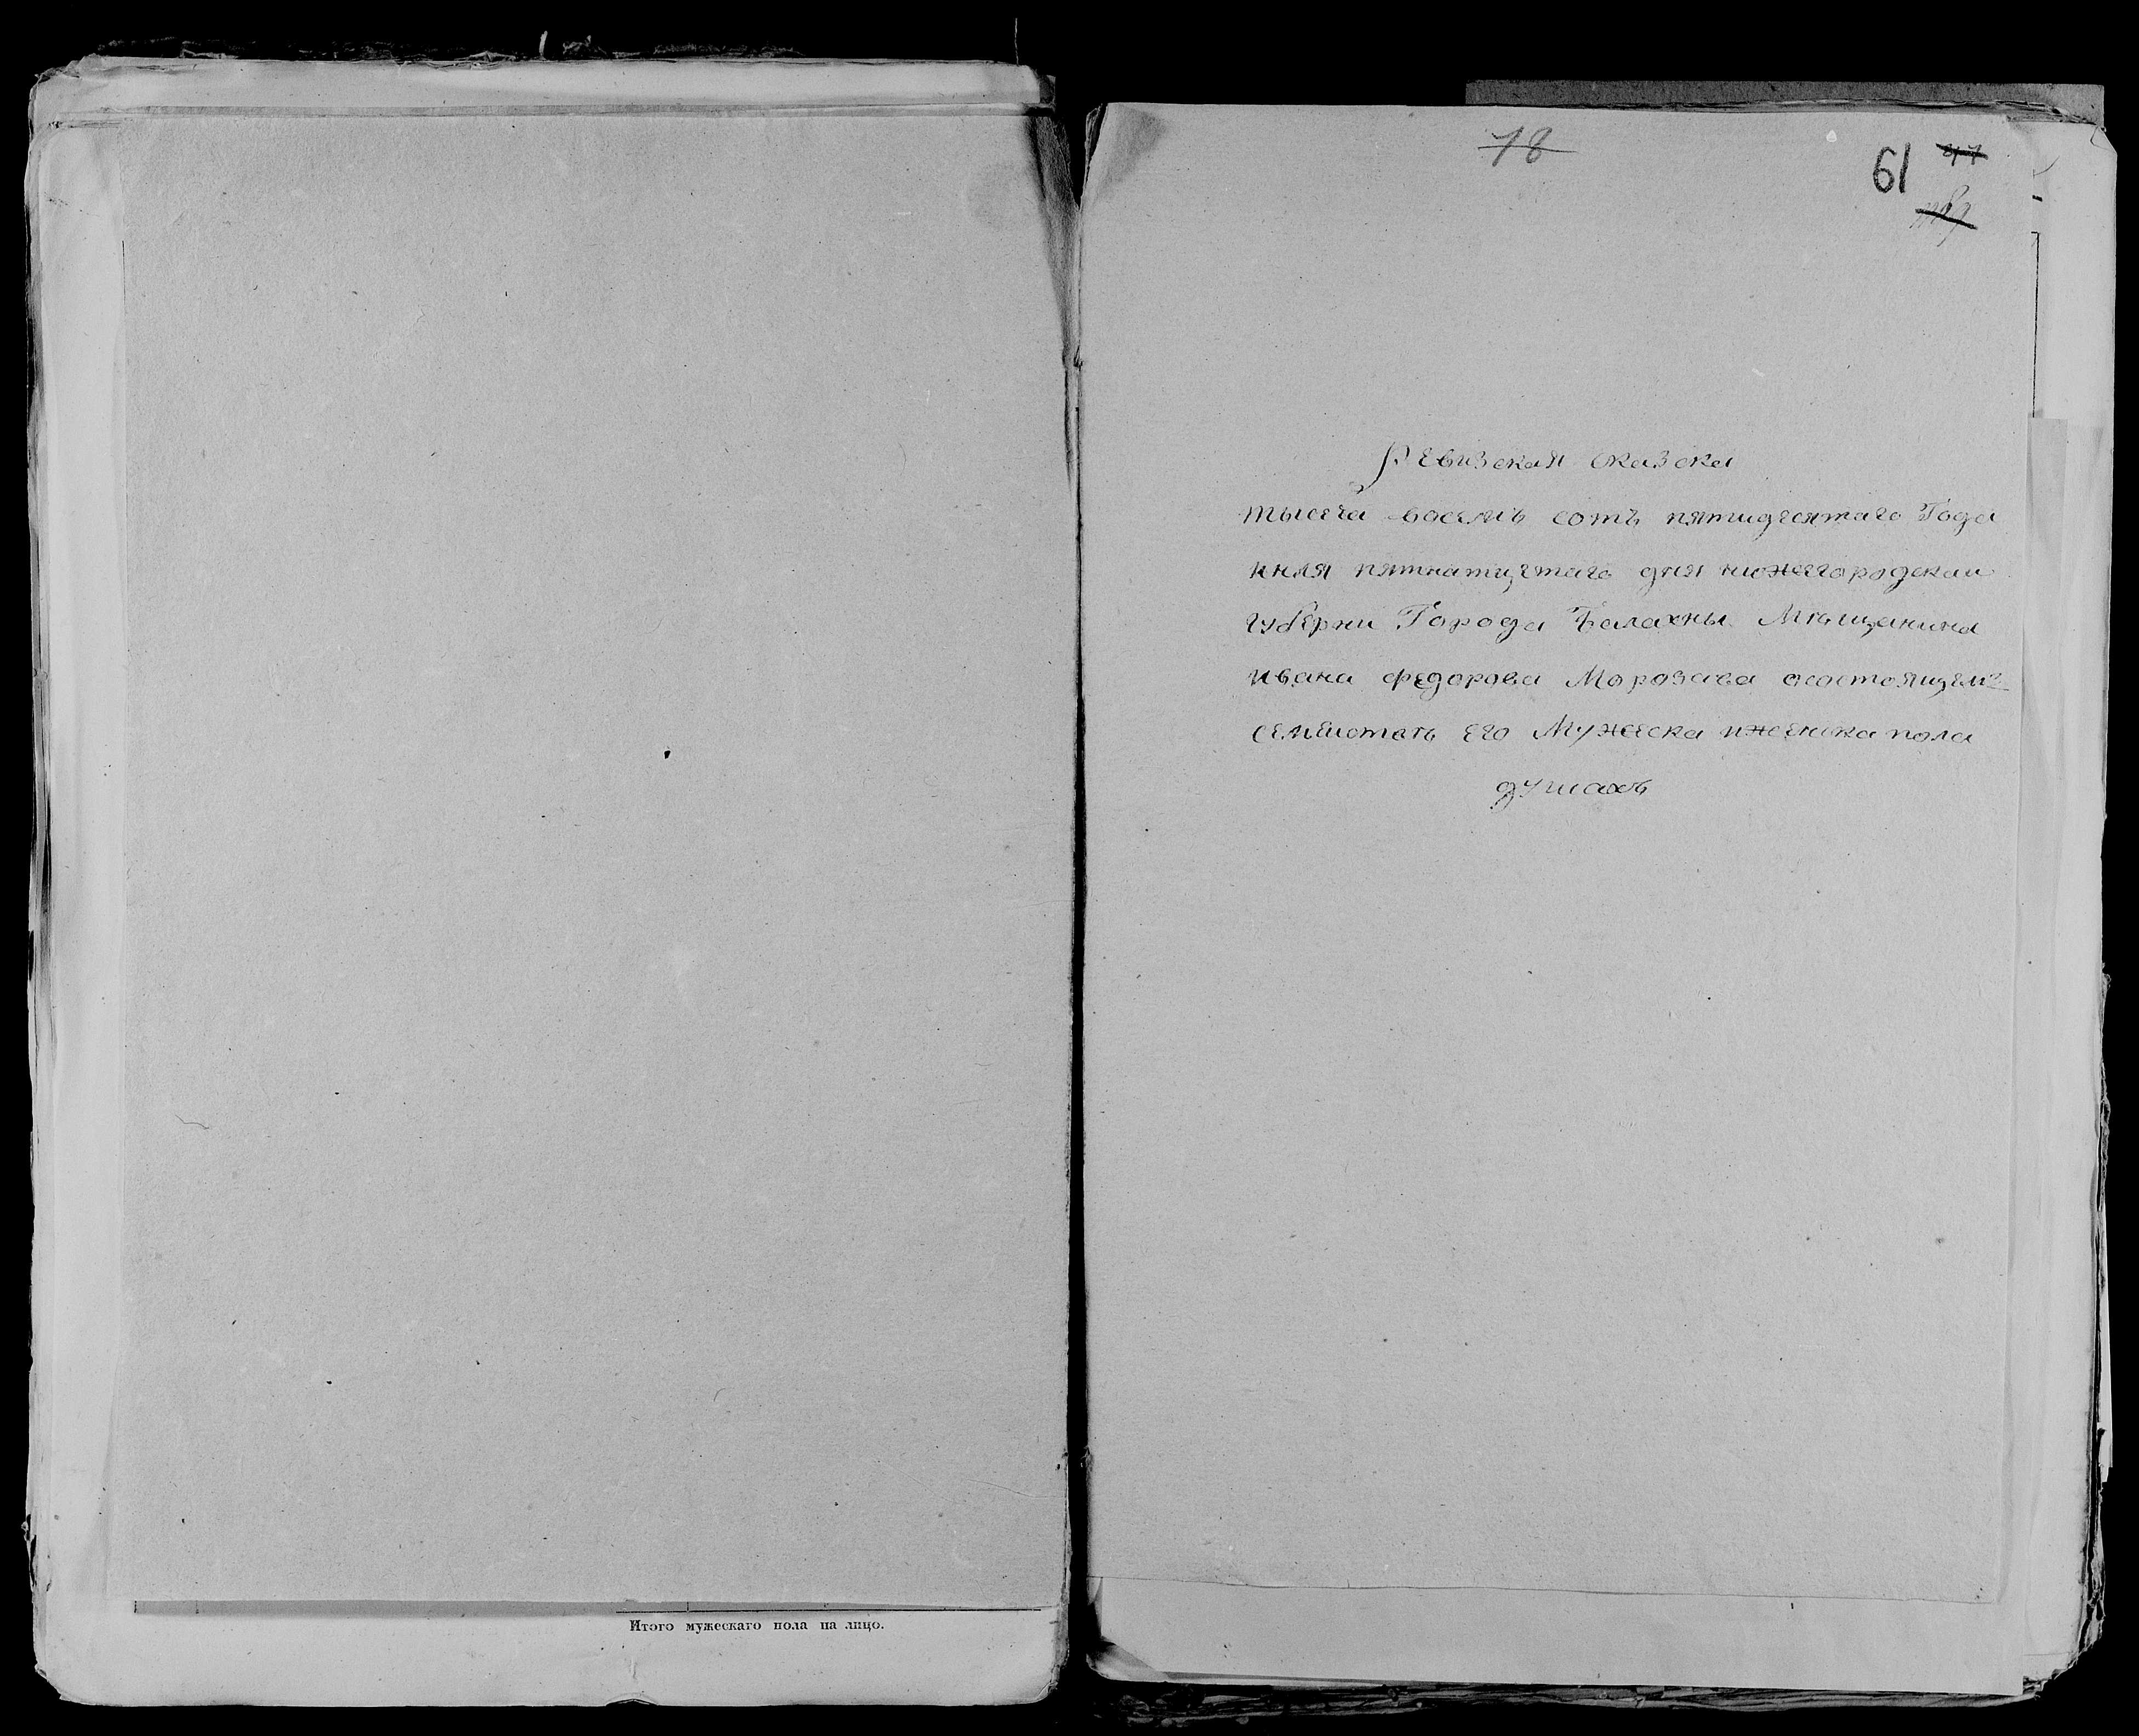 Итого мужескаго пола на лицо.
78
61 47
Ревизская сказска
тысеча восемь сотъ пятидесятаго Года
июля пятнатцетаго дня нижегородскаи
губерни Города Балахны Мъщанина
ивана федорова Морозава осостоящем
его Мужеска иженска пола
душахъ